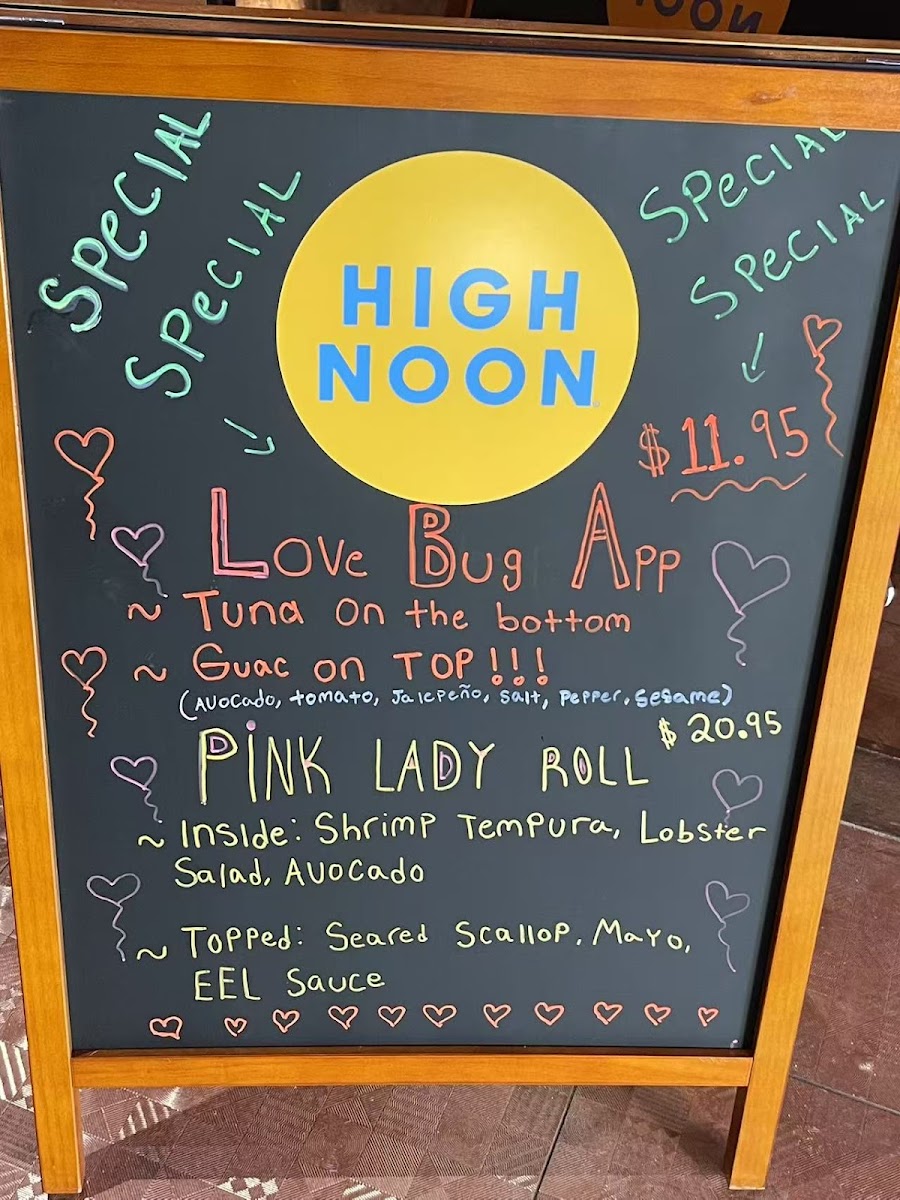 NOON
SPeCIAL
SPeCIAL
HIGH
NOON
SPeCIAL
SPeCIAL
$11.95
LOVe Bug App
~ Tuna on the bottom
~ Guac on TOP!!!
(Avocado, tomato, Jalepeño, Salt, Pepper, Sesame)
PiNK LADY ROLL $20.95
~ Inside: Shrimp Tempura, Lobster
Salad, Avocado
~ Topped: Seared Scallop, Mayo,
EEL Sauce